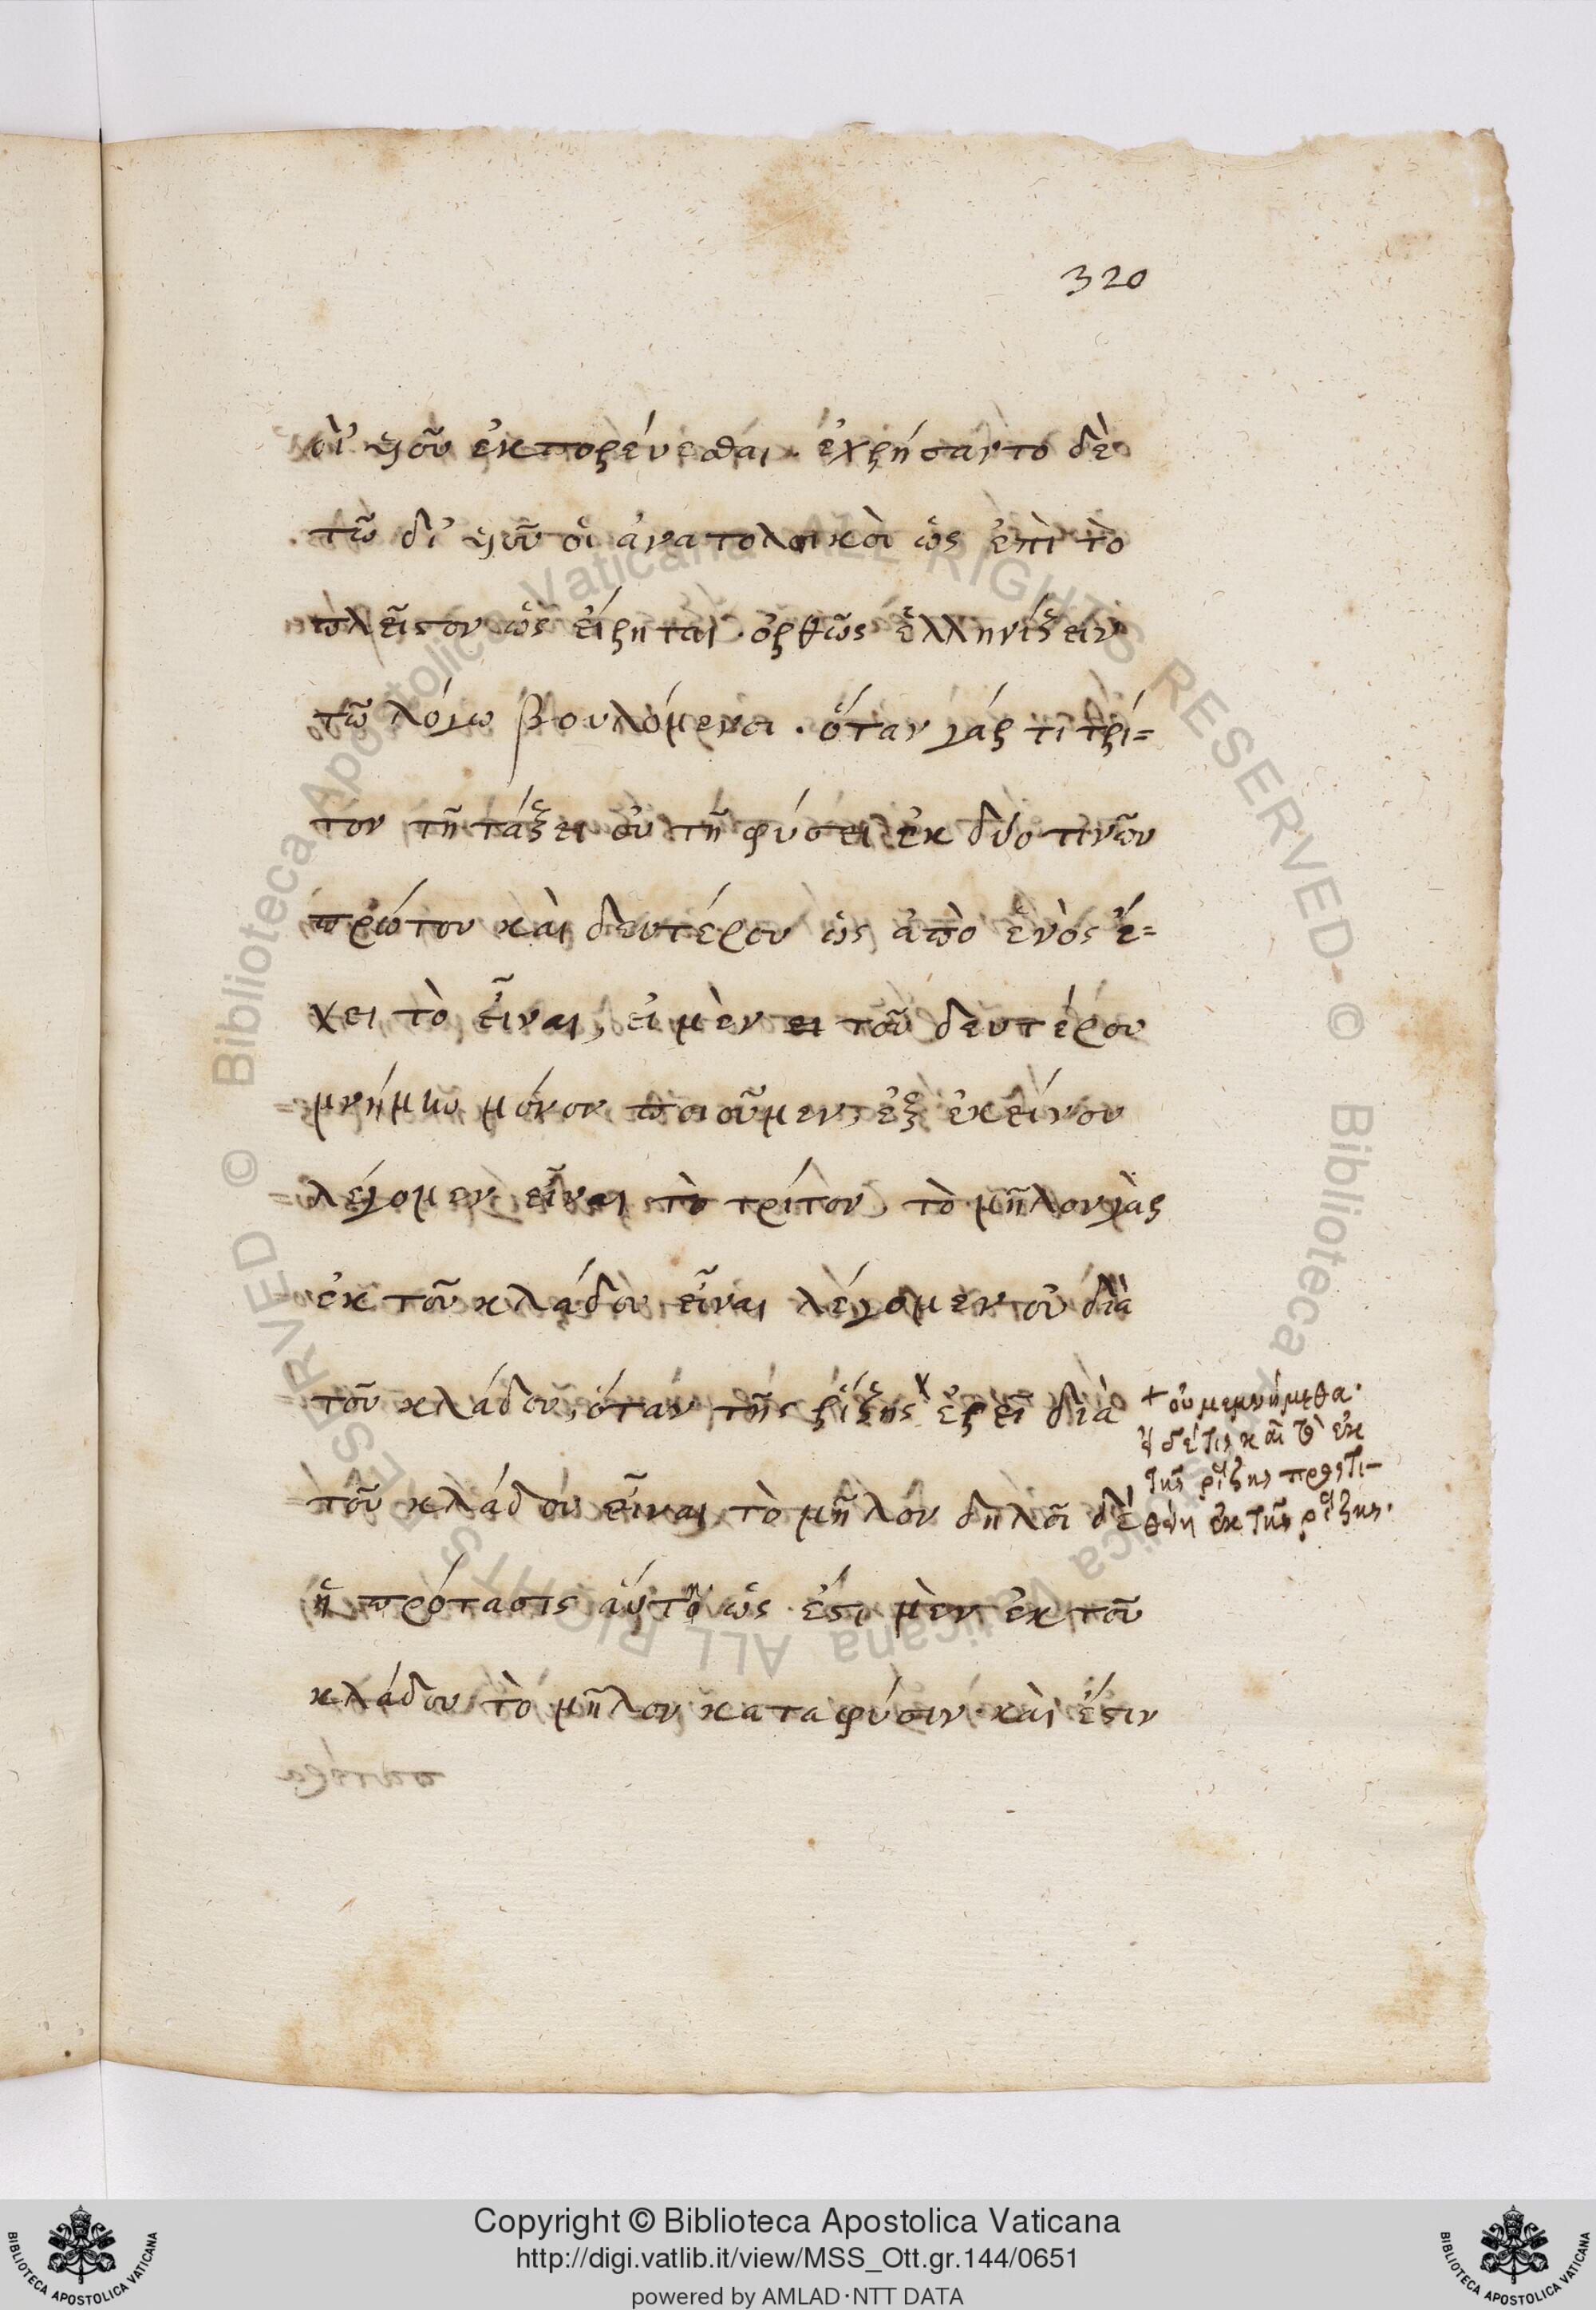 320
δι' υἱοῦ ἐκπορεύεσθαι. ἐχρήσαντο δὲ
τῶ δι' υἱοῦ οἱ ἀνατολικοὶ ὡς ἐπὶ τὸ
πλεῖστον ὡς εἴρηται. ὀρθῶς ἑλληνίζειν
τῶ λόγω βουλόμενοι. ὅταν γάρ τι τρί=
τον τῆ τάξει οὐ τῆ φύσει ἐκ δύο τινῶν
πρώτου καὶ δευτέρου ὡς ἀπὸ ἑνὸς ἔ=
χει τὸ εἶναι, εἰ μὲν τοῦ δευτέρου
μνήμην μόνον ποιοῦμεν, ἐξ ἐκείνου
λέγομεν εἶναι τὸ τρίτον, τὸ μῆλον γὰρ
ἐκ τοῦ κλάδου εἶναι λέγομεν οὐ διὰ
τοῦ κλάδου, ὅταν τῆς ῥίζης ἐρεῖ διὰ
+ οὐ μεμνήμεθα.
εἰ δέ τις καὶ τὸ ἐκ
τῆς ῥίζης προστι-
θείη ἐκ τῆς ῥίζης.
τοῦ κλάδου εἶναι τὸ μῆλον δηλοῖ δὲ
ἡ πρότασις αὐτὴ ὡς ἔστι μὲν ἐκ τοῦ
κλάδου τὸ μῆλον κατα φύσιν. καὶ ἔστιν
Copyright © Biblioteca Apostolica Vaticana
http://digi.vatlib.it/view/MSS_Ott.gr.144/0651
powered by AMLAD·NTT DATA